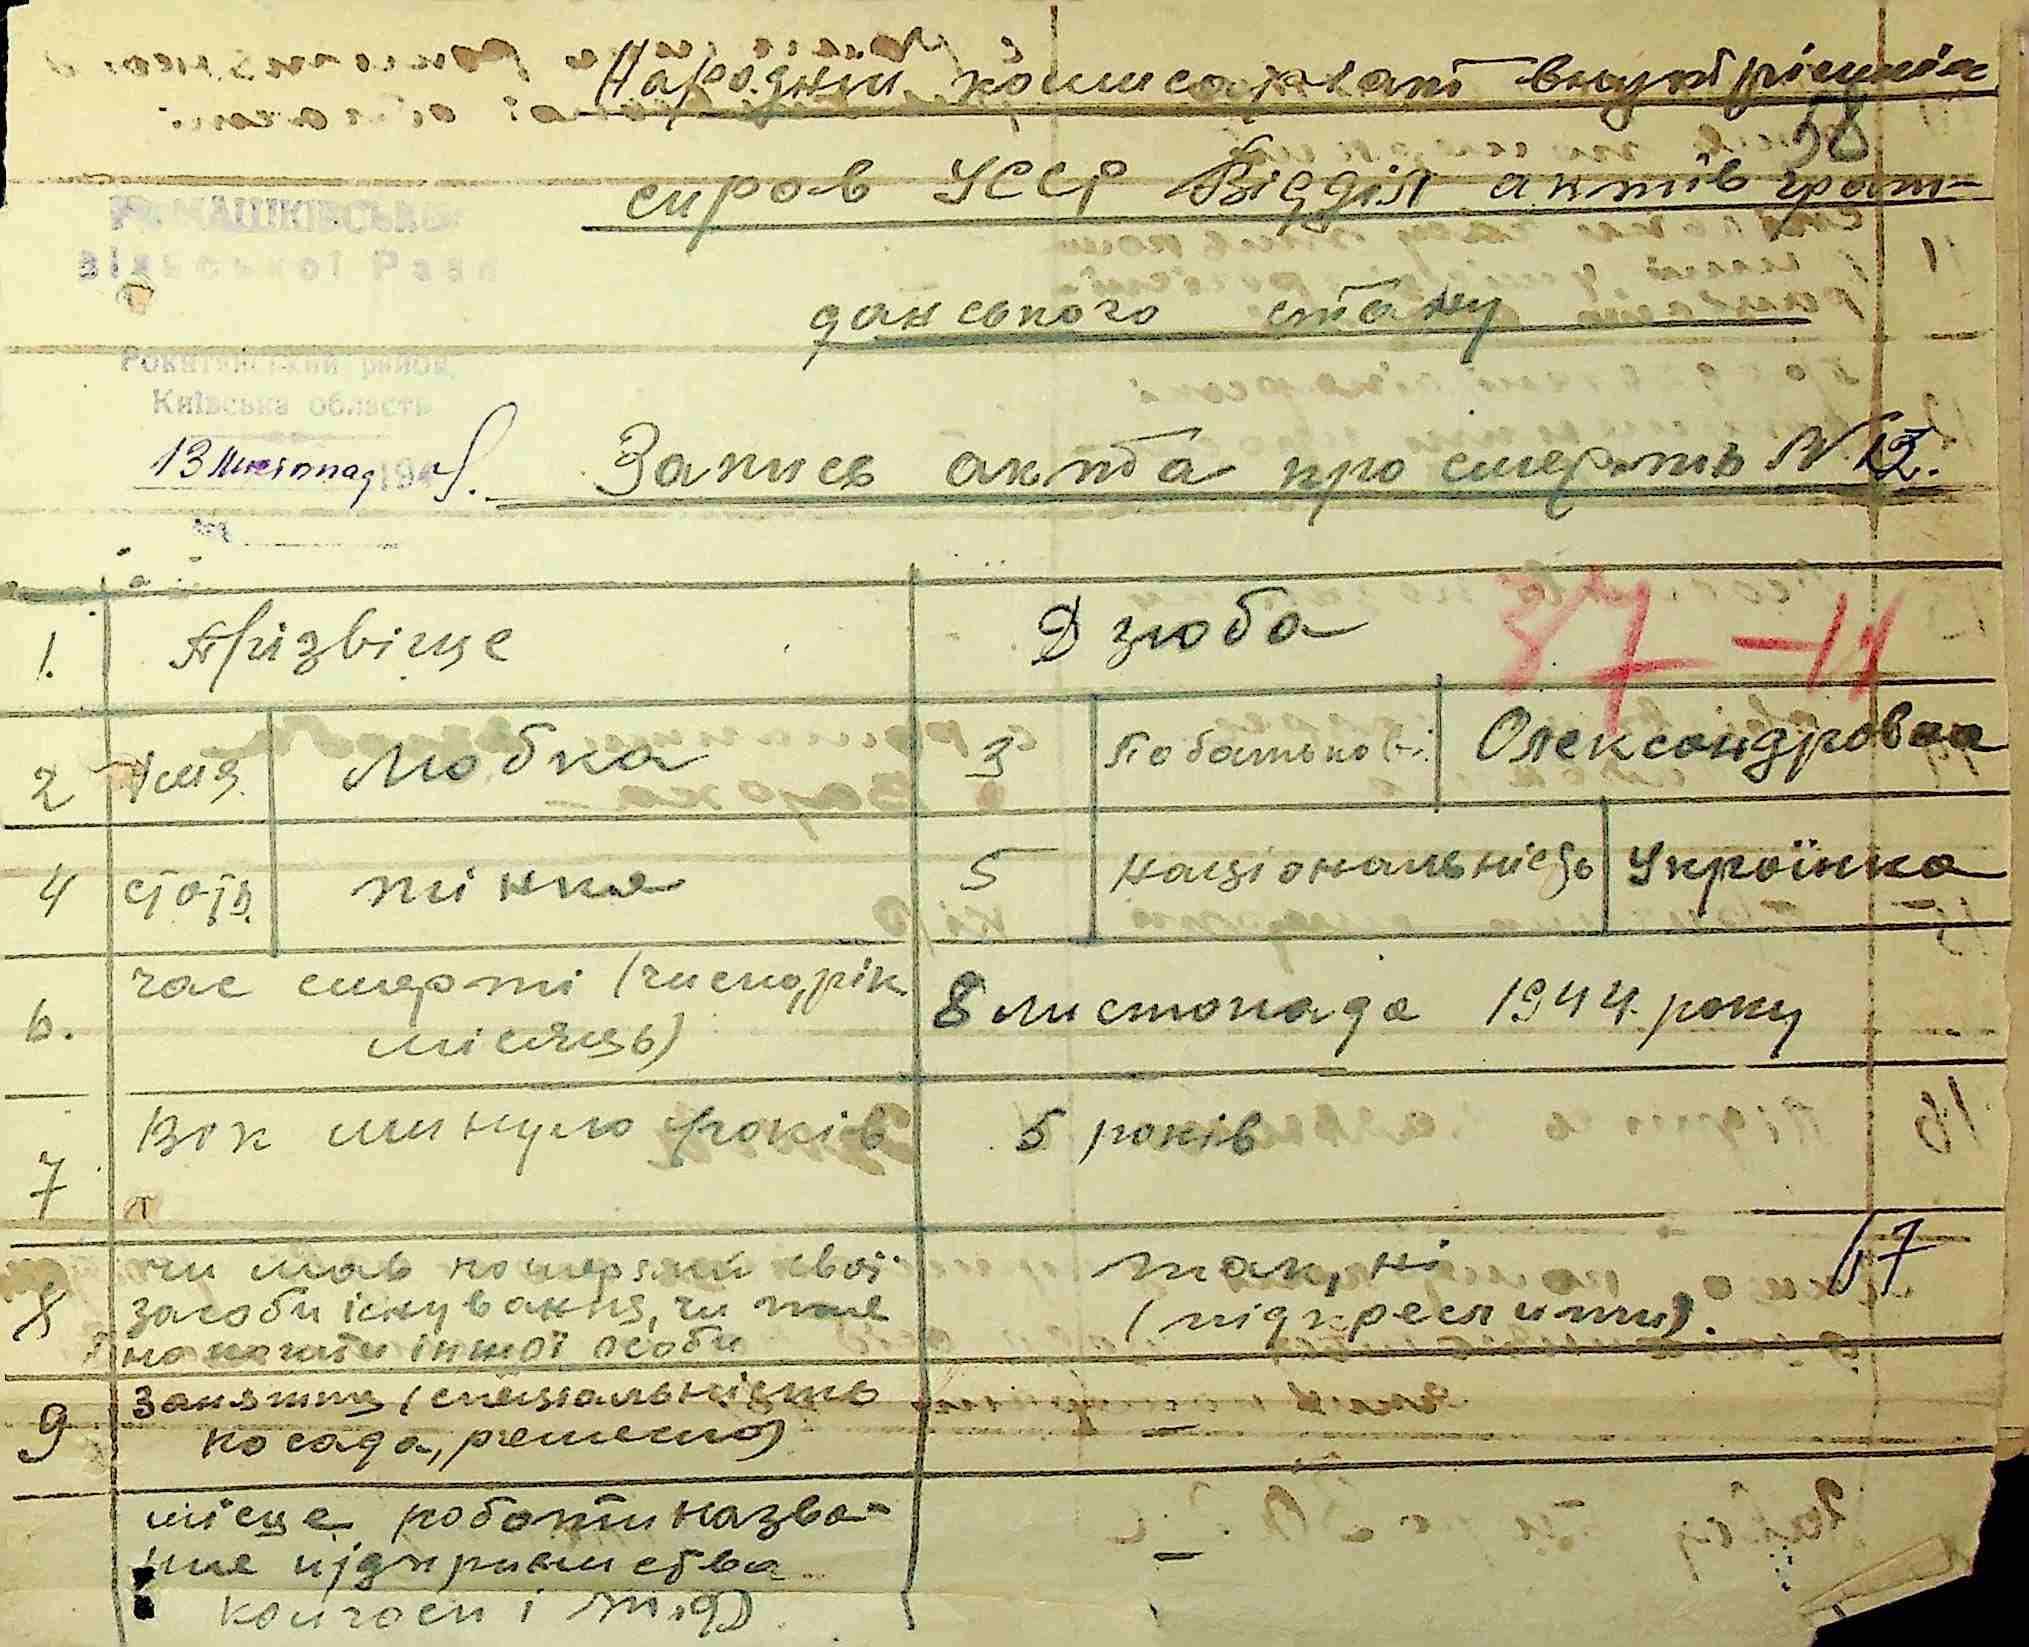 Народний комисаріат внутрішніх
58
справ УССР Відділ актів грам-
данського стану
РОМАШКІВСЬКА
сільської Ради
Рокитянський район,
Київська область
13 листопад 194 р.
Запись акта про смерть N. 12.
37-11
1. Прізвіще Дзюба
2 Імя Любка 3 По батькові Олександровна
4 стать жінка 5 Національність Українка
6. час смерті (число, рік
місяць) 8 листопада 1944 року
7 Вік минуло років 5 років
8 чи мав померлий свої
засоби існування, чи жив
на кошти іншої особи
так, ні
(підкреслити).
57
9 Заняття (спеціальність
посада, ремесло) –
місце роботи назва-
ние підприємства
колгосп і т.д) –